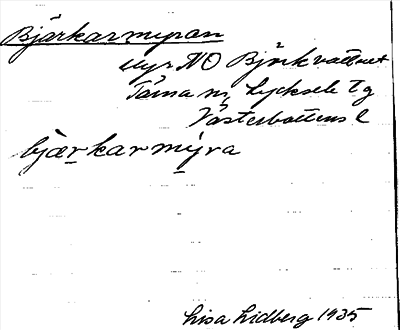 Björkarmyran
myr NO Björkvattnet
Tärna sn, Lycksele tg
Västerbottens l
bjærkarmyra
Lisa Lidberg 1935